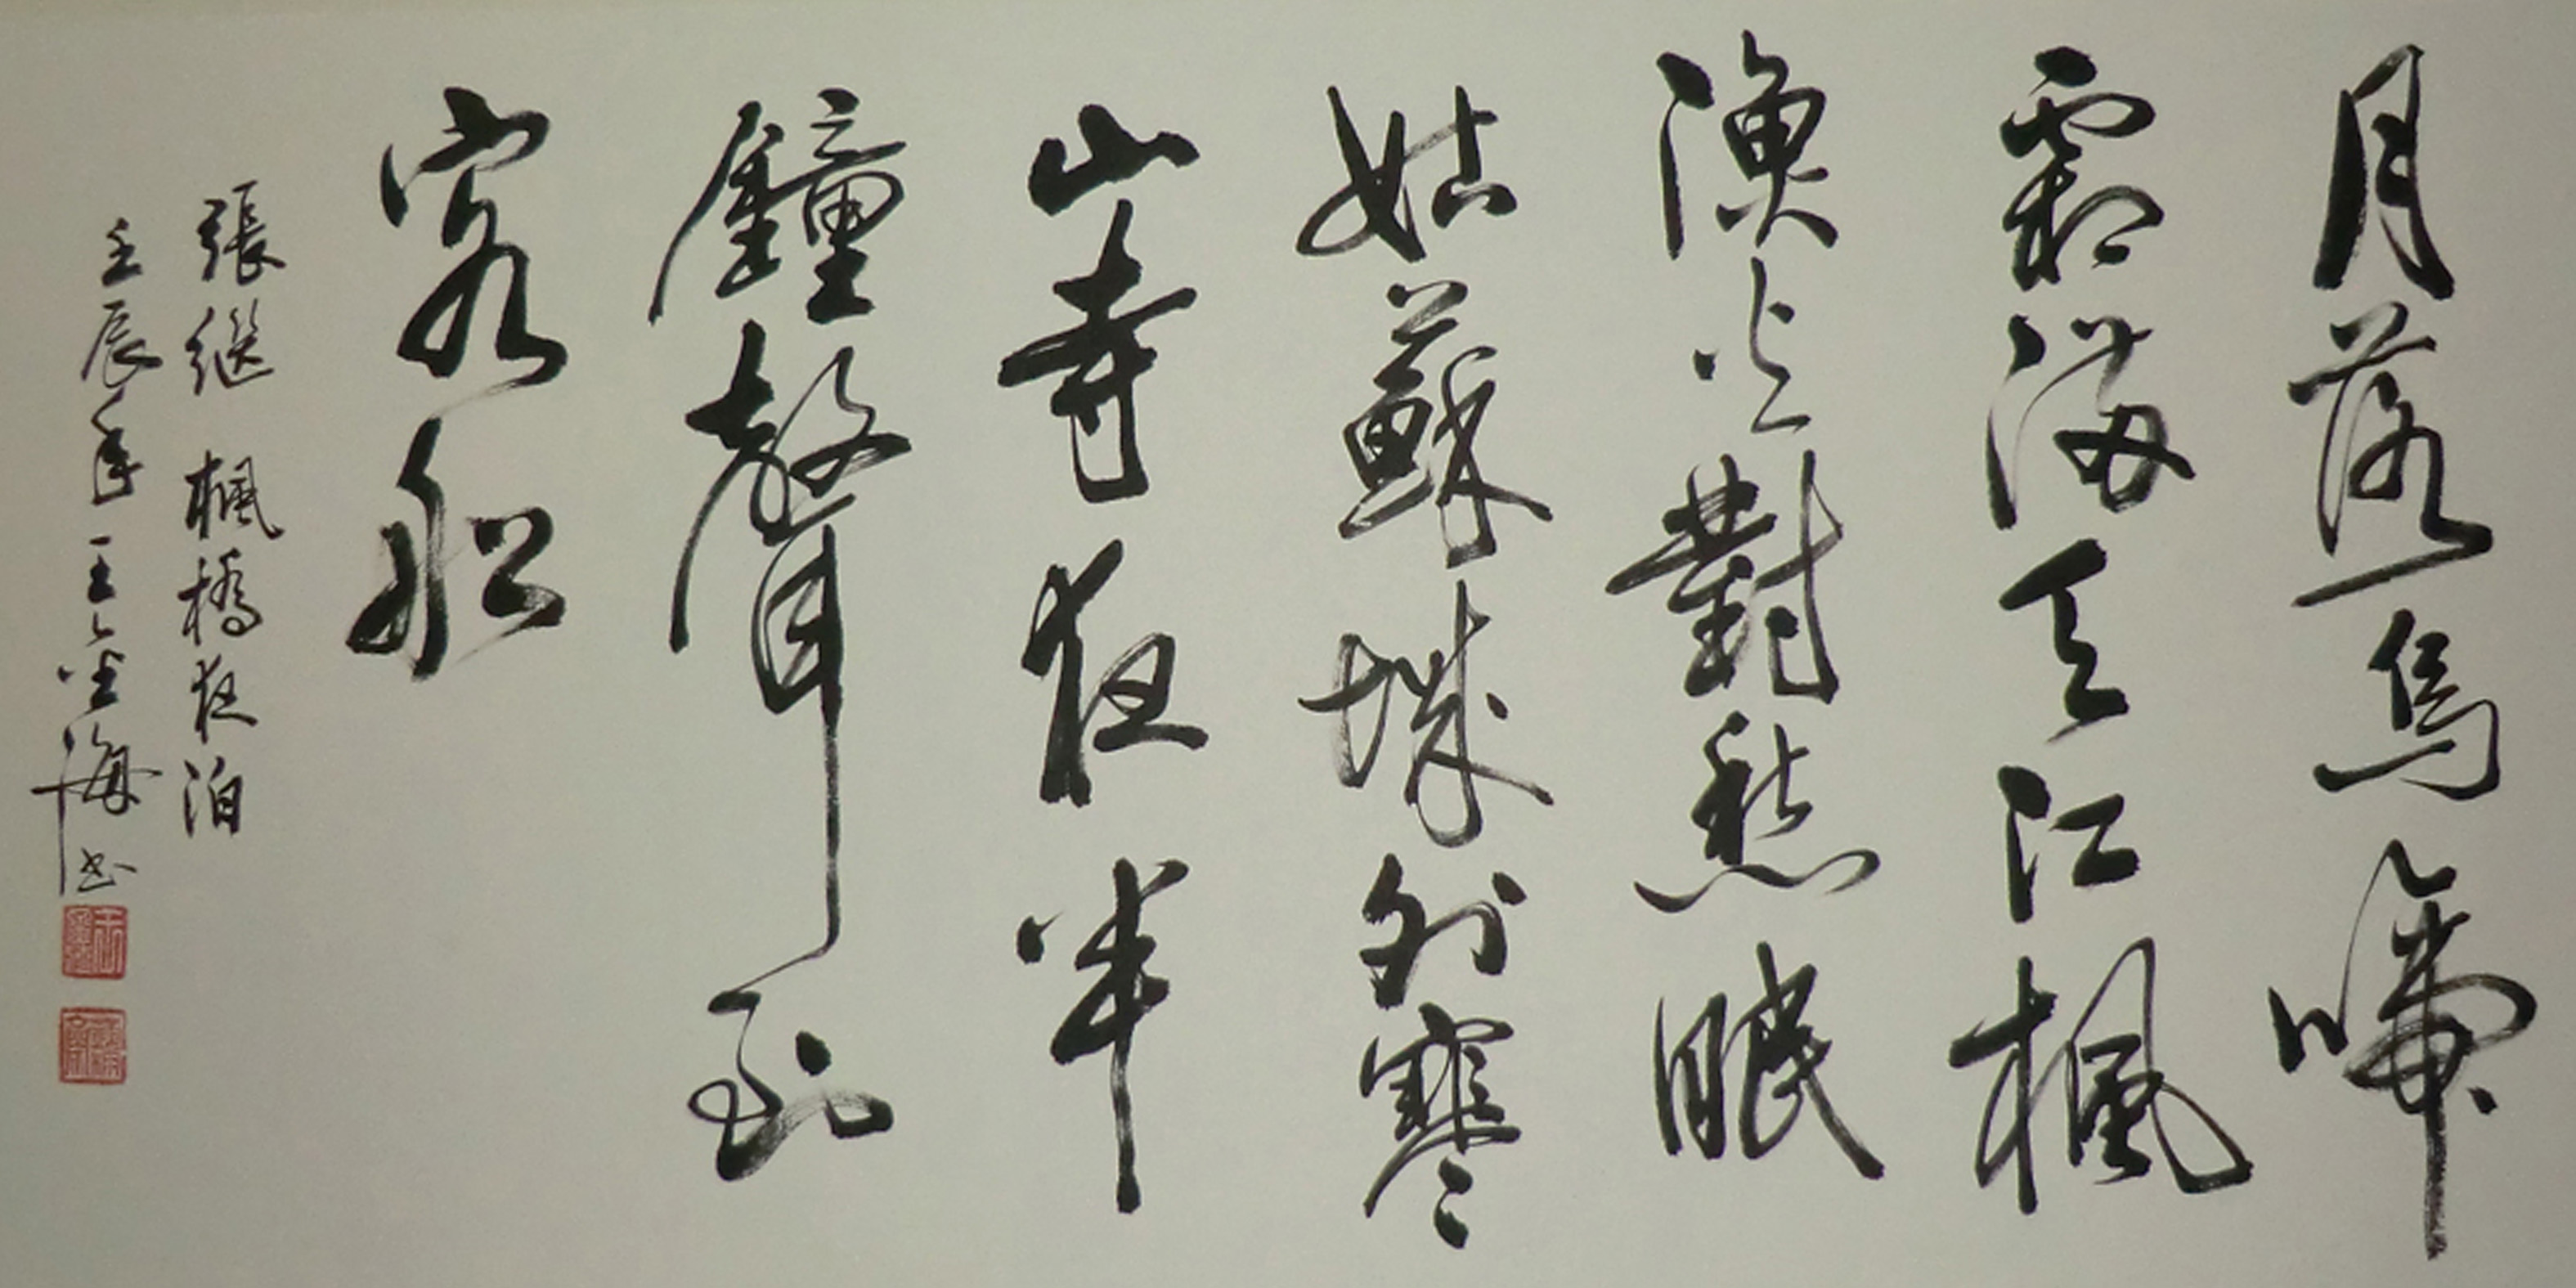 月落烏啼
霜滿天江楓
漁火對愁眠
姑蘇城外寒
山寺夜半
鐘聲到
客船
張継 楓橋夜泊
壬辰年王金海书